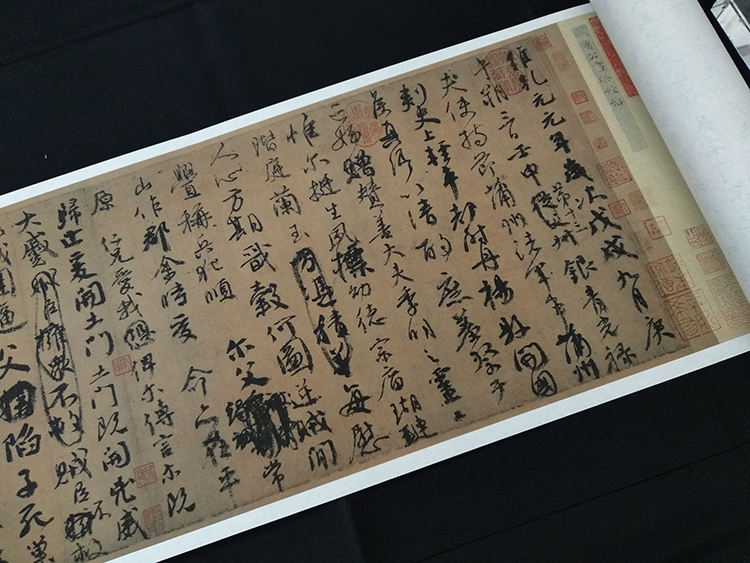 維乾元元年歲次戊戌九月庚
午朔三日壬申第十三從父叔銀青光祿
夫使持節蒲州諸軍事蒲州
刺史上輕車都尉丹楊縣開國
侯真卿以清酌庶羞祭于
亡姪贈贊善大夫季明之靈曰
惟爾挺生夙標幼德宗廟瑚璉
階庭蘭玉方憑積善每慰
人心方期戩穀何圖逆賊間
釁稱兵犯順爾父竭誠常
山作郡余時受命亦在平
原仁兄愛我俾爾傳言爾既
歸止爰開土門土門既開凶威
大蹙賊臣擁眾不救賊臣不救
城圍逼父陷子死巢